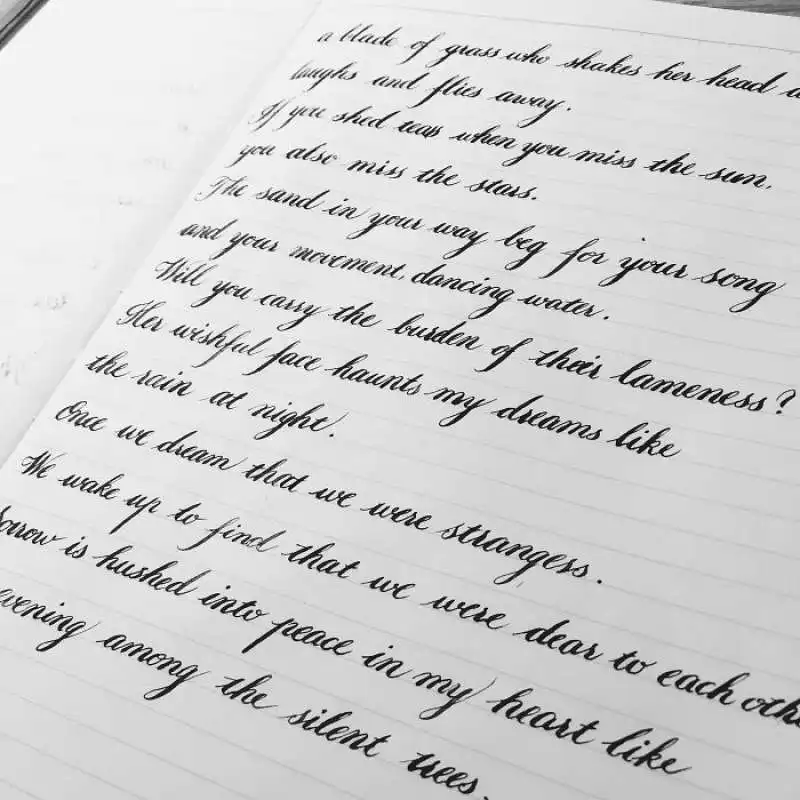 a blade of grass who shakes her head a
laughs and flies away.
If you shed teas when you miss the sun.
you also miss the stars.
The sand in your way beg for your song
and your movement, dancing water.
Will you carry the burden of their lameness?
Her wishful face haunts my dreams like
the rain at night.
Once we dream that we were strangers.
We wake up to find that we were dear to each othe
Sorrow is hushed into peace in my heart like
evening among the silent trees.